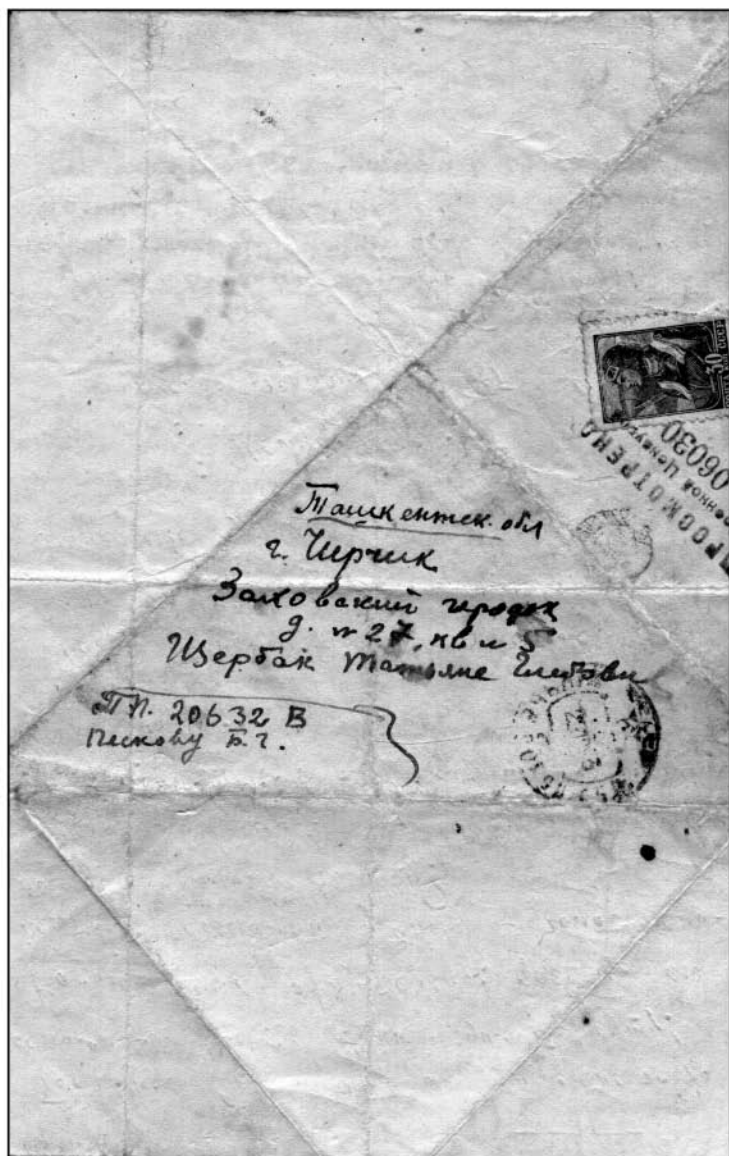 30
ПОЧТА СССР
ПРОСМОТРЕНО
Военной Цензурой
06030
Ташкентск. обл
г. Чирчик
городок
д. № 27, кв № 5
Щербак Татьяне
ПП. 20632 В
Пескову Б. г.